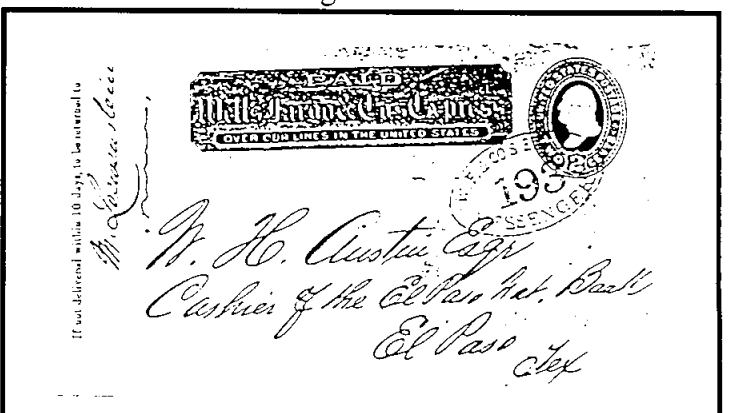 If not delivered within 10 days, to be returned to
M. Loewenstein
PAID
Wells Fargo & Co's Express
OVER OUR LINES IN THE UNITED STATES
W.F. & CO'S E
193
SSENGER
W. H. Austin Esqr
Cashier of the El Paso Nat. Bank
El Paso
Tex